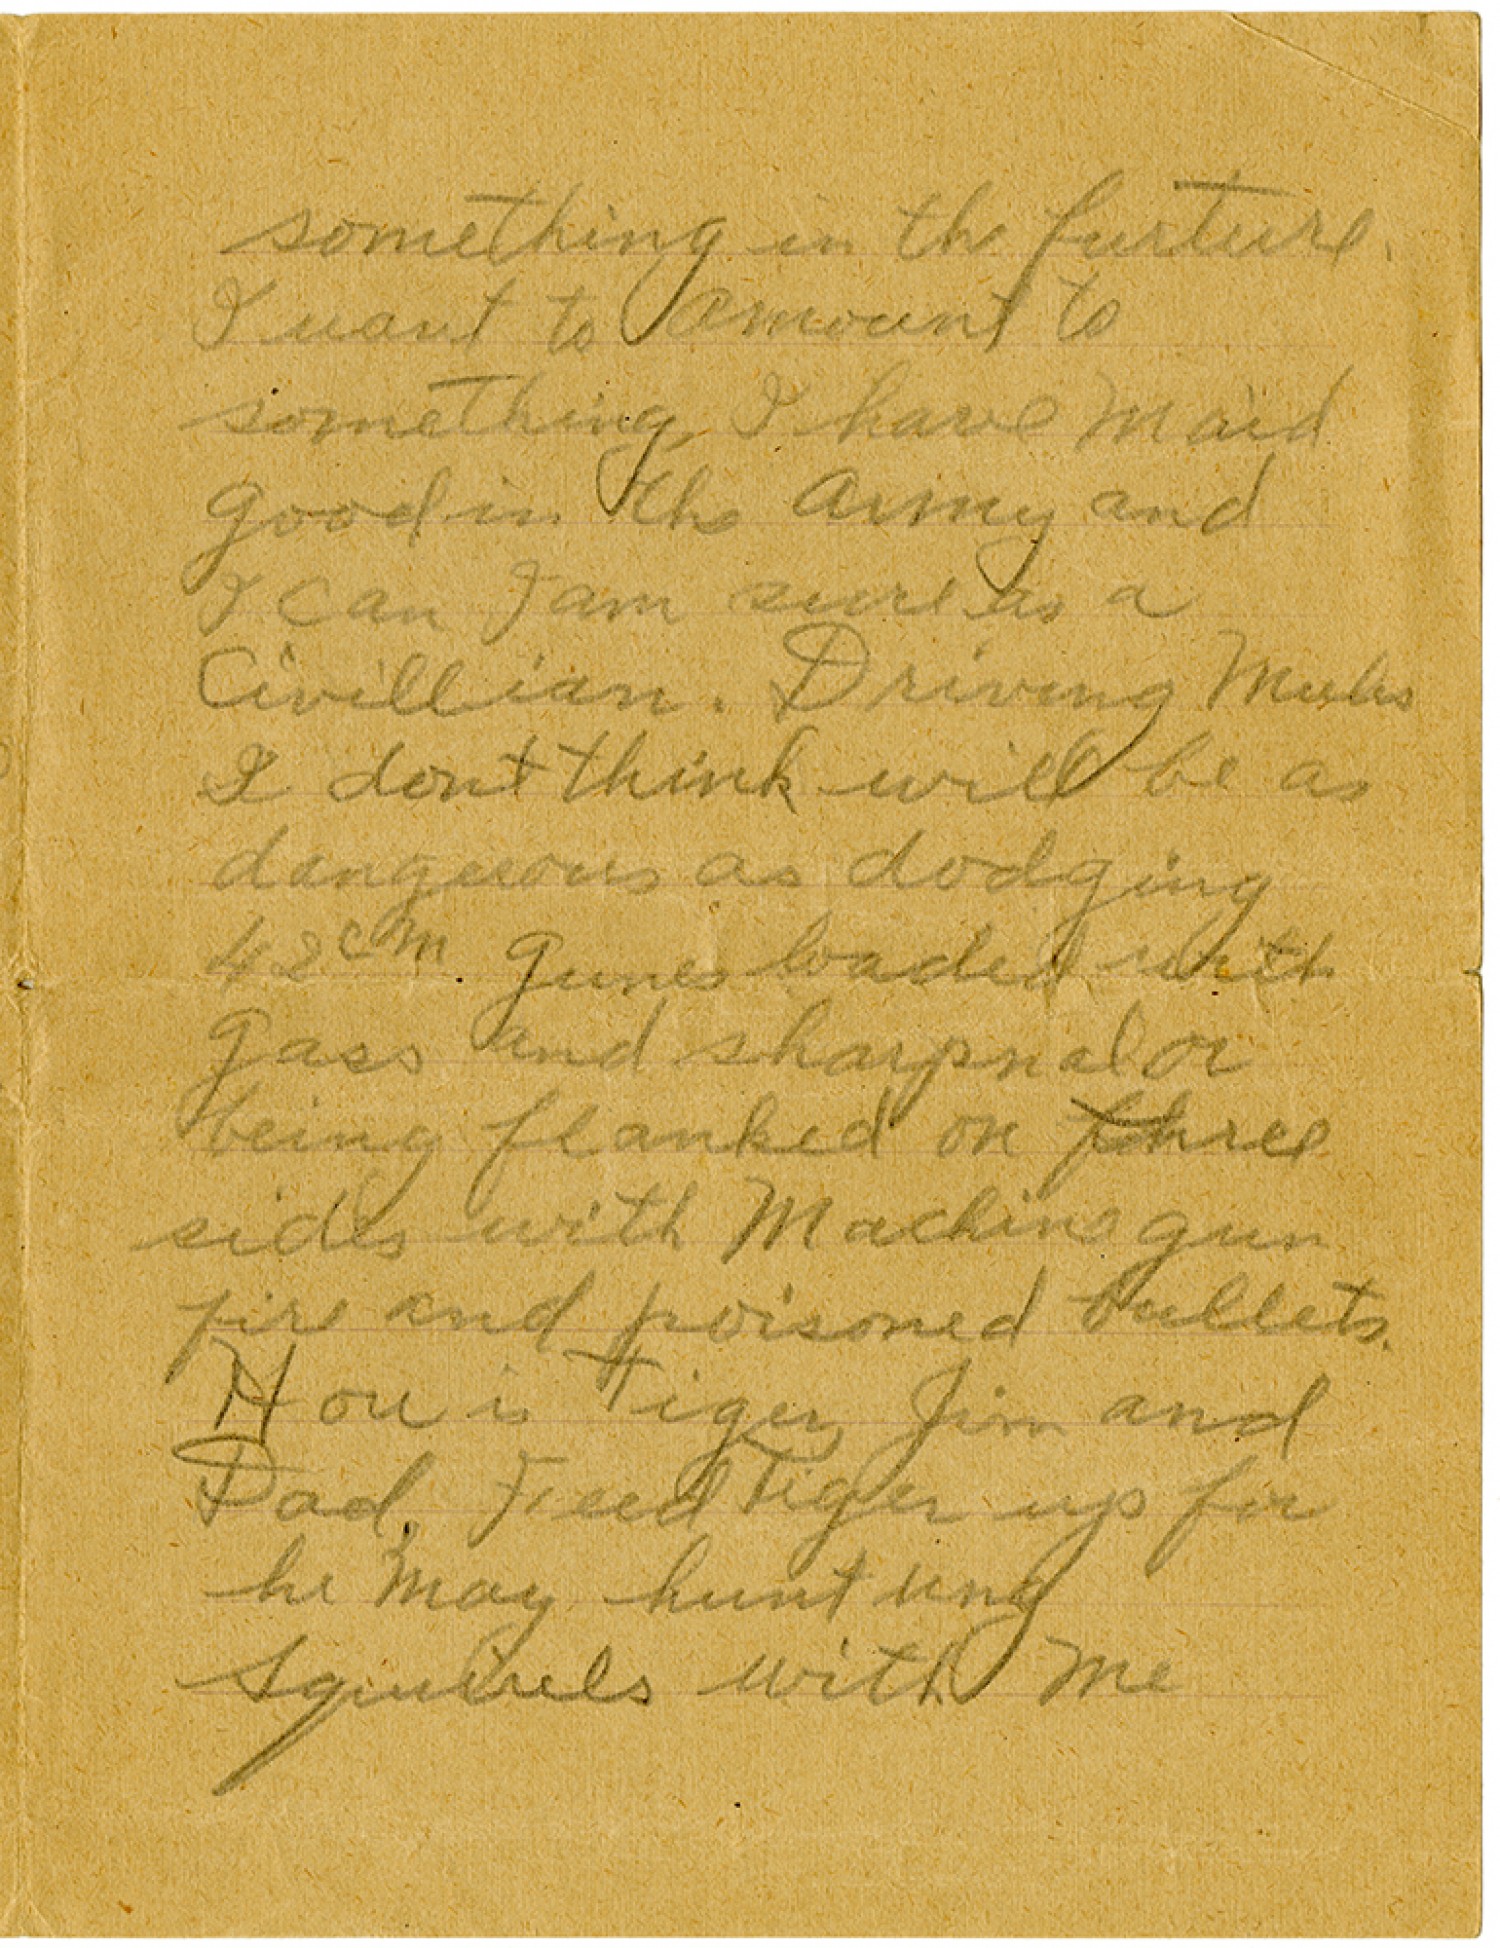 something in the furture.
I want to amount to
something, I have Maid
good in the Army and
I can I am sure as a
Civillian. Driving Mules
I dont think will be as
dangerous as dodging
42 cm. gunes loaded with
gass and sharpnal or
being flanked on three
sides with Machine gun
fire and poisoned bullets.
How is Tiger, Jim and
Dad. Feed Tiger up for
he may hunt
squirrels with me